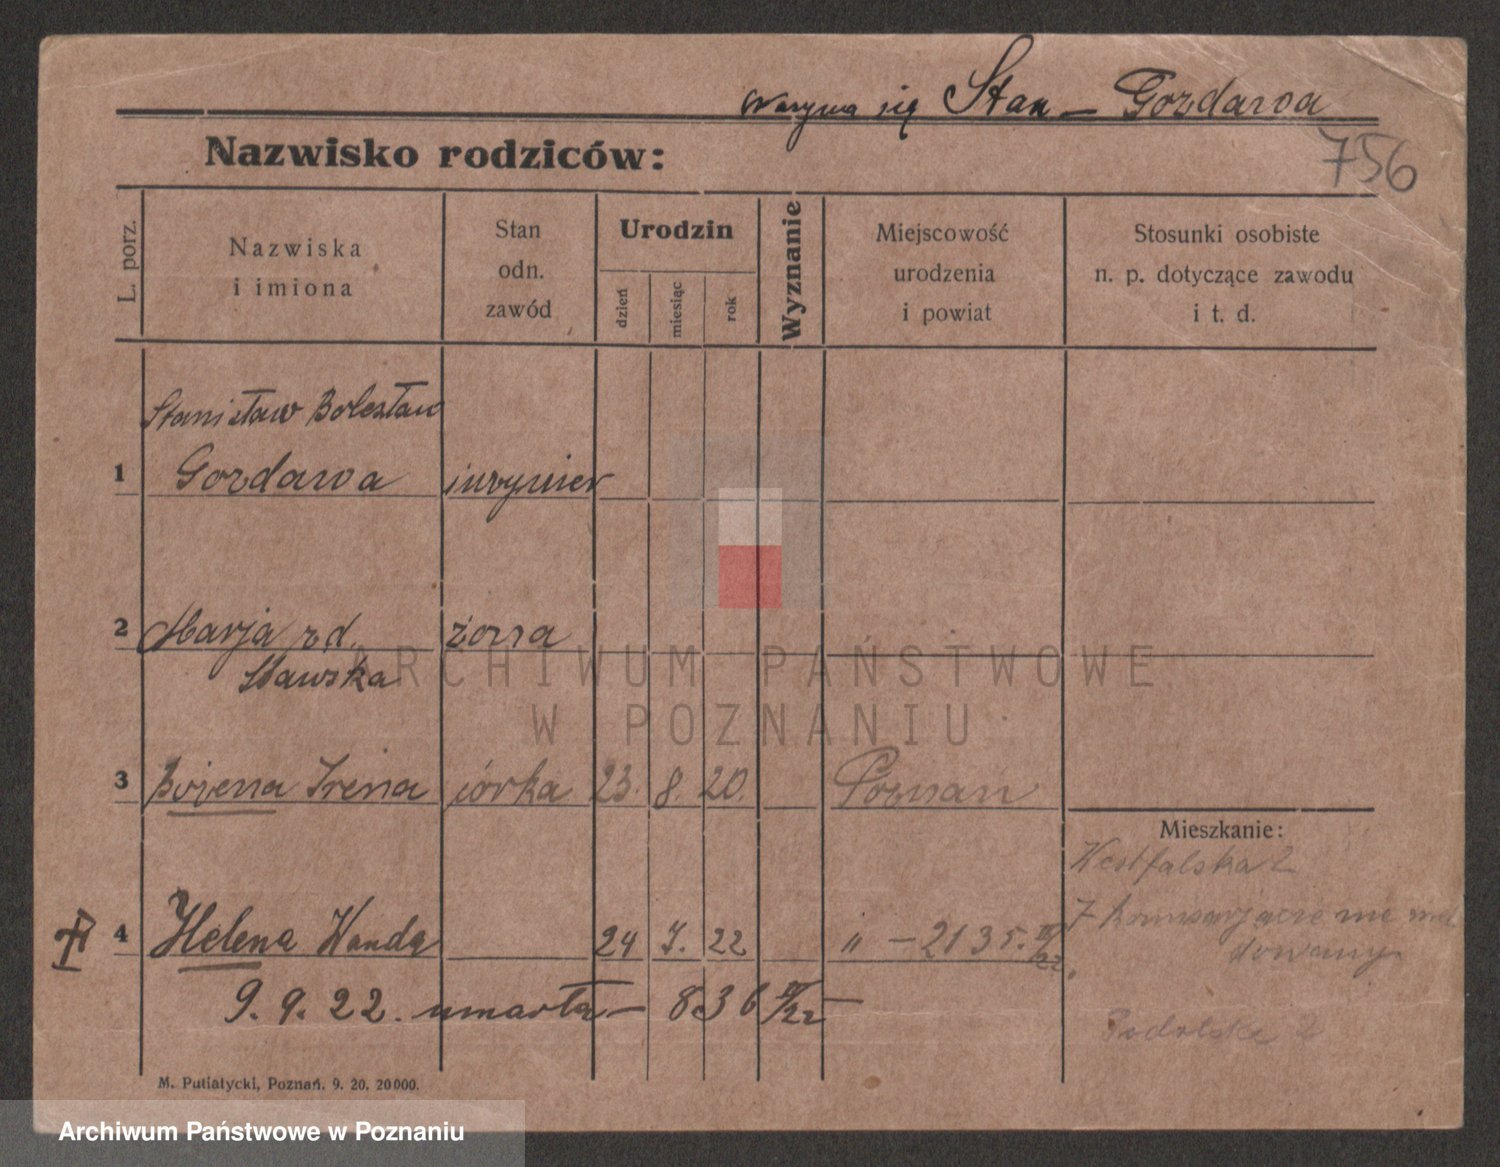 Stan – Gozdawa
Nazwisko rodziców:
756
L. porz.
Nazwiska
i imiona
Stan
odn.
zawód
Urodzin
dzień
miesiąc
rok
Wyznanie
Miejscowość
urodzenia
i powiat
Stosunki osobiste
n. p. dotyczące zawodu
i t. d.
Stanisław Bolesław
1 Gozdawa inżynier
2 Marja zd. żona
Sławska
ARCHIWUM PAŃSTWOWE
W POZNANIU
3 Bożena Irena córka 23. 8. 20. Poznań
Mieszkanie:
Westfalska 2
4 Helena Wanda 24 7. 22 " – 2135. IV/22.
9. 9. 22. umarła – 836 IV/22 –
Podolska 2
M. Putiatycki, Poznań. 9. 20. 20000.
Archiwum Państwowe w Poznaniu